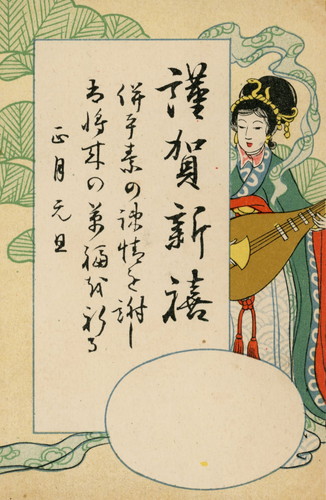 謹賀新禧
併平素の疎情を謝し
将来の萬福を祈る
正月元旦